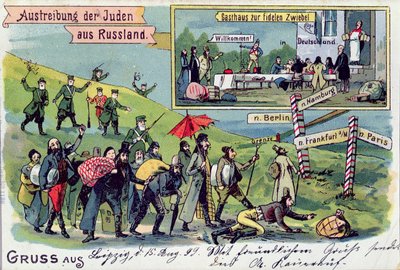 Austreibung der Juden
aus Russland.
Gasthaus zur fidelen Zwiebel
in
Deutschland.
Willkommen!
n. Hamburg
n. Berlin
Grenze
n. Frankfurt a/M
n. Paris
GRUSS AUS
Leipzig, d 15 Aug. 99. Mit freundlichem Gruss